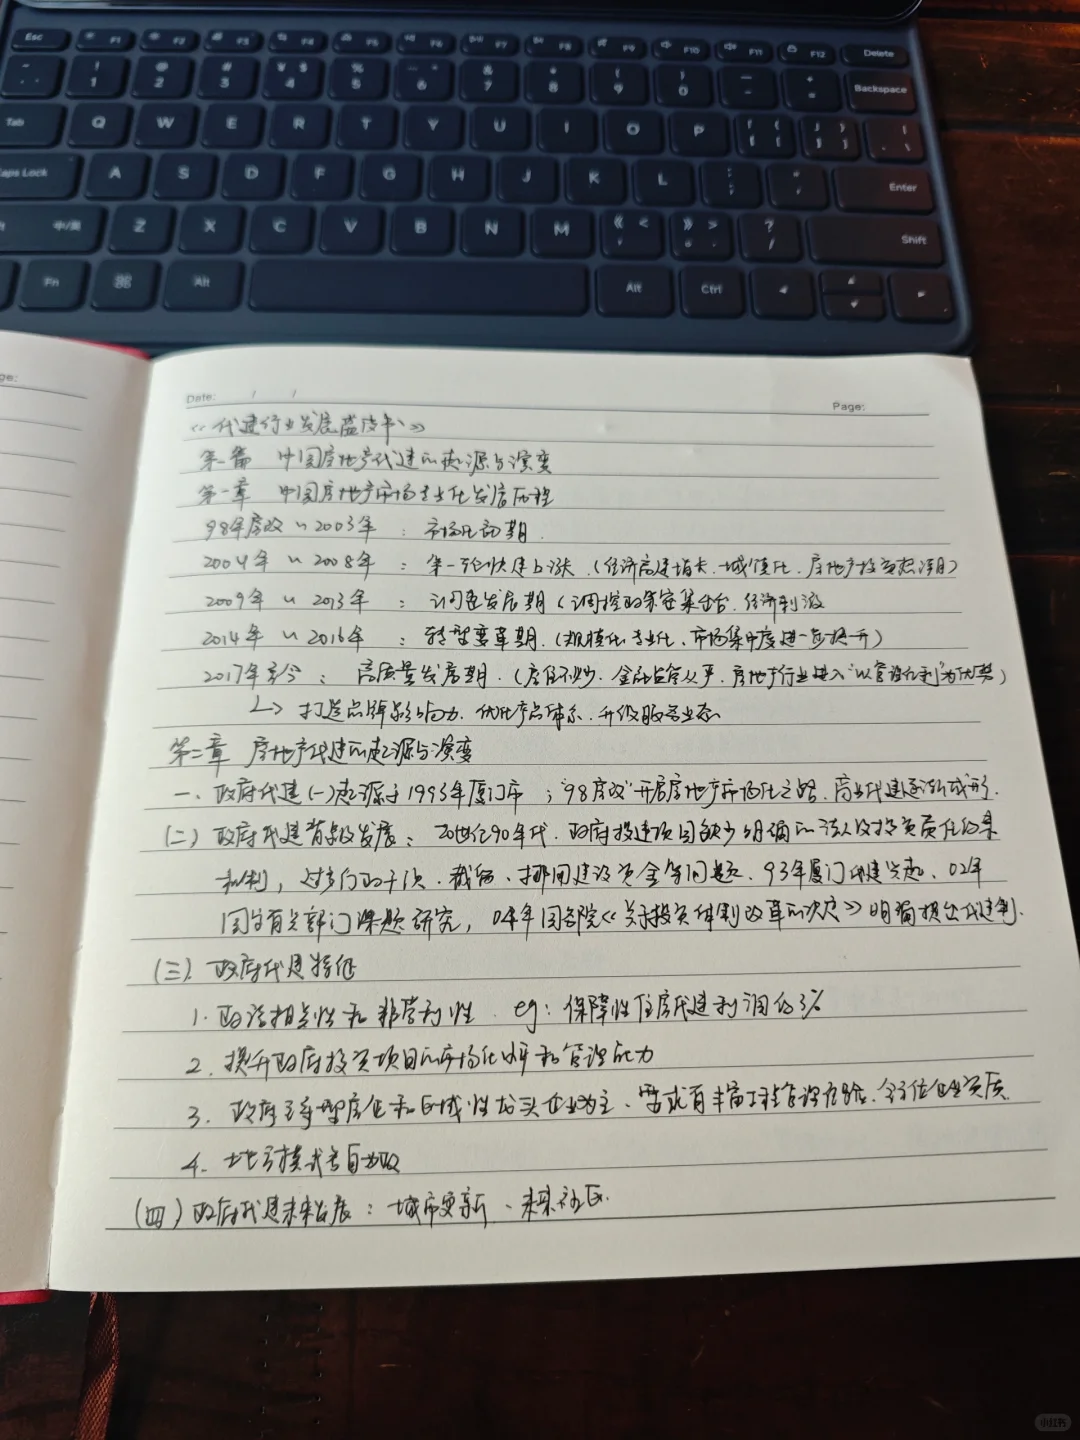 Esc F1 F2 F3 F4 F5 F6 F7 F8 F9 F10 F11 F12 Delete
! 1 @ 2 # 3 ¥ $ 4 % 5 6 & 7 * 8 ( 9 ) 0 Backspace
Tab Q W E R T Y U I O P
Caps Lock A S D F G H J K L Enter
中/英 Z X C V B N M 《 < 》 > ? / Shift
Fn ⌘ Alt Alt Ctrl
ge:
Date: / /
Page:
《代建行业发展蓝皮书》
第一篇 中国房地产代建的起源与演变
第一章 中国房地产市场专业化发展历程
98年房改~2003年：市场化初期.
2004年~2008年：第一轮快速上涨.(经济高速增长.城镇化.房地产投资热潮)
2009年~2013年：调整发展期(调控政策密集出台.经济刺激
2014年~2016年：转型变革期.(规模化专业化、市场集中度进一步提升)
2017年至今：高质量发展期.(房住不炒.金融监管从严.房地产行业进入"以管理红利"为优势)
↳ 打造品牌影响力.优化产品体系.升级服务业态
第二章 房地产代建的起源与演变
一.政府代建(一)起源于1993年厦门市；"98房改"开启房地产市场化之路.商业代建逐渐成形.
(二)政府代建背景及发展：20世纪90年代.政府投建项目缺少明确的法人及投资责任约束
机制，过多行政干预.截留、挪用建设资金等问题.93年厦门代建兴起、02年
国务有关部门课题研究，04年国务院《关于投资体制改革的决定》明确提出代建制.
(三)政府代建特征
1.政治相关性和非营利性. eg：保障性住房代建利润约3%
2.提升政府投资项目的市场化水平和管理能力
3.政府多选型房企和区域性龙头企业为主、要求有丰富工程管理经验.全方位企业资质.
4.地方模式各自为政
(四)政府代建未来发展：城市更新、未来社区.
小红书